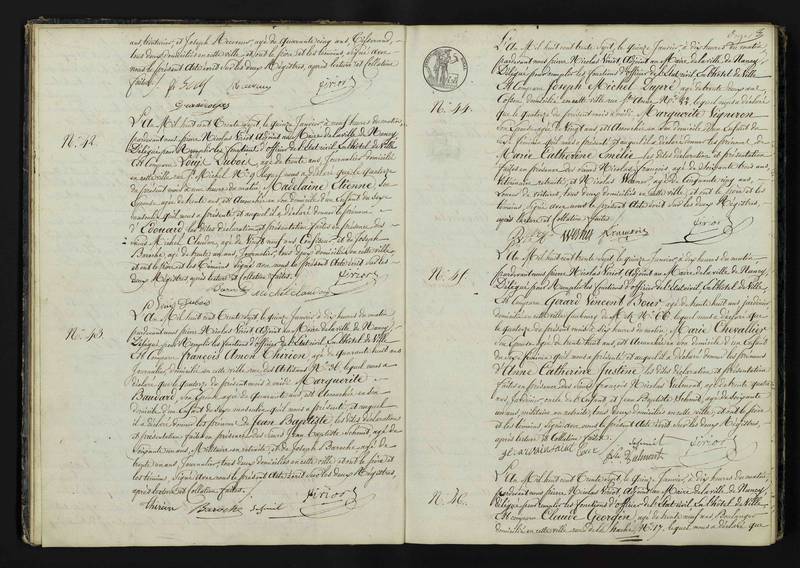 nous le présent Acte écrit sur les deux Registres, après lecture et Collation
faites.
N.º 42.
L'An Mil huit cent Trente Sept, le quinze Janvier à neuf heures du matin,
pardevant nous pierre Nicolas Viriot Adjoint au Maire de la ville de Nancy,
Délégué pour Remplir les fonctions d'officier de l'état civil à l'hôtel de Ville
Est Comparu Louis Dubois, âgé de trente ans, Journalier domicilié
en cette ville, rue St. Michel N.º 9 lequel nous a déclaré que le quatorze
du présent mois à une heure du matin Madelaine Etienne, son
Epouse âgée de trente ans est Accouchée en son domicile d'un Enfant du Sexe
masculin qu'il nous a présenté et auquel il a déclaré donner le prénom
d'Edouard, les dites déclaration et présentation faites en présence des
sieurs Michel Claudon, âgé de Vingt neuf ans Confiseur, et de Joseph
Baroche, âgé de trente un ans, Journalier, tous deux domiciliés en cette ville,
et ont le père et les témoins signé avec nous le présent Acte écrit sur les
deux Registres après lecture et collation faites.
Viriot
Michel Claudon
Dubois
N.º 43.
L'An Mil huit cent Trente Sept, le quinze Janvier à dix heures du matin
pardevant nous pierre Nicolas Viriot Adjoint au Maire de la ville de Nancy,
Délégué pour Remplir les fonctions d'officier de l'état civil à l'hôtel de Ville
Est Comparu François Amon Thirion, âgé de quarante huit ans
Journalier, domicilié en cette ville rue des Artisans N.º 31 lequel nous a
déclaré que le quatorze du présent mois à midi Marguerite
Baudard, son Epouse âgée de quarante ans est Accouchée en son
domicile d'un Enfant du Sexe masculin qu'il nous a présenté et auquel
il a déclaré donner les prénoms de Jean Baptiste, les dites déclaration
et présentation faites en présence des sieurs Jean Baptiste Schmit, âgé de
Soixante un ans, Militaire en retraite et de Joseph Baroche âgé de
trente un ans, Journalier, tous deux domiciliés en cette ville et ont le père et
les témoins signé avec nous le présent Acte écrit sur les deux Registres,
après lecture et Collation faites.
Viriot
thirion Baroche schmit
N.º 44.
L'An Mil huit cent trente Sept, le quinze Janvier à dix heures du matin
pardevant nous pierre Nicolas Viriot Adjoint au Maire de la ville de Nancy,
Délégué pour remplir les fonctions d'officier de l'état civil à l'hôtel de Ville
Est Comparu Joseph Michel Dupré, âgé de trente deux ans
domicilié en cette ville rue Ste Anne lequel nous a déclaré
que le quatorze du présent mois à midi Marguerite Vigneron
son Epouse âgée de Vingt ans est Accouchée en son domicile d'un Enfant du
sexe féminin qu'il nous a présenté et auquel il a déclaré donner les prénoms de
Marie Catherine Emélie les dites déclaration et présentation
faites en présence des sieurs Nicolas François âgé de soixante trois ans,
Vétérinaire retraité, et Nicolas âgé de Cinquante cinq ans,
Loueur de voitures, tous deux domiciliés en cette ville, et ont le père et les
témoins signé avec nous le présent Acte écrit sur les deux Registres,
après lecture et Collation faites.
françois Viriot
N.º 45.
L'An Mil huit cent trente Sept, le quinze Janvier à dix heures du matin
pardevant nous pierre Nicolas Viriot Adjoint au Maire de la ville de Nancy,
Délégué pour Remplir les fonctions d'officier de l'état civil à l'hôtel de Ville
Est Comparu Gérard Vincent Bour, âgé de trente huit ans, jardinier
domicilié en cette ville faubourg N.º 66 lequel nous a déclaré que
le quatorze du présent mois à dix heures du matin, Marie Chevallier
son Epouse âgée de trente huit ans, est Accouchée en son domicile d'un Enfant
du Sexe féminin qu'il nous a présenté et auquel il a déclaré donner les prénoms
d'Anne Catherine Justine les dites déclaration et présentation
faites en présence des sieurs françois Nicolas Vulmont, âgé de trente quatre
ans Jardinier, oncle de l'enfant, et Jean Baptiste Schmit, âgé de soixante
un ans militaire en retraite, tous deux domiciliés en cette ville, et ont le père et
les témoins, signé avec nous le présent Acte écrit sur les deux Registres,
après lecture et Collation faites.
schmit Viriot
N.º 46.
L'An Mil huit cent Trente Sept, le quinze Janvier, à dix heures du matin,
pardevant nous pierre Nicolas Viriot, Adjoint au Maire de la ville de Nancy,
Délégué pour remplir les fonctions d'officier de l'état civil à l'hôtel de Ville
Est comparu Claude Georgin, âgé de trente neuf ans, Boulanger
domicilié en cette ville N.º 17, lequel nous a déclaré que